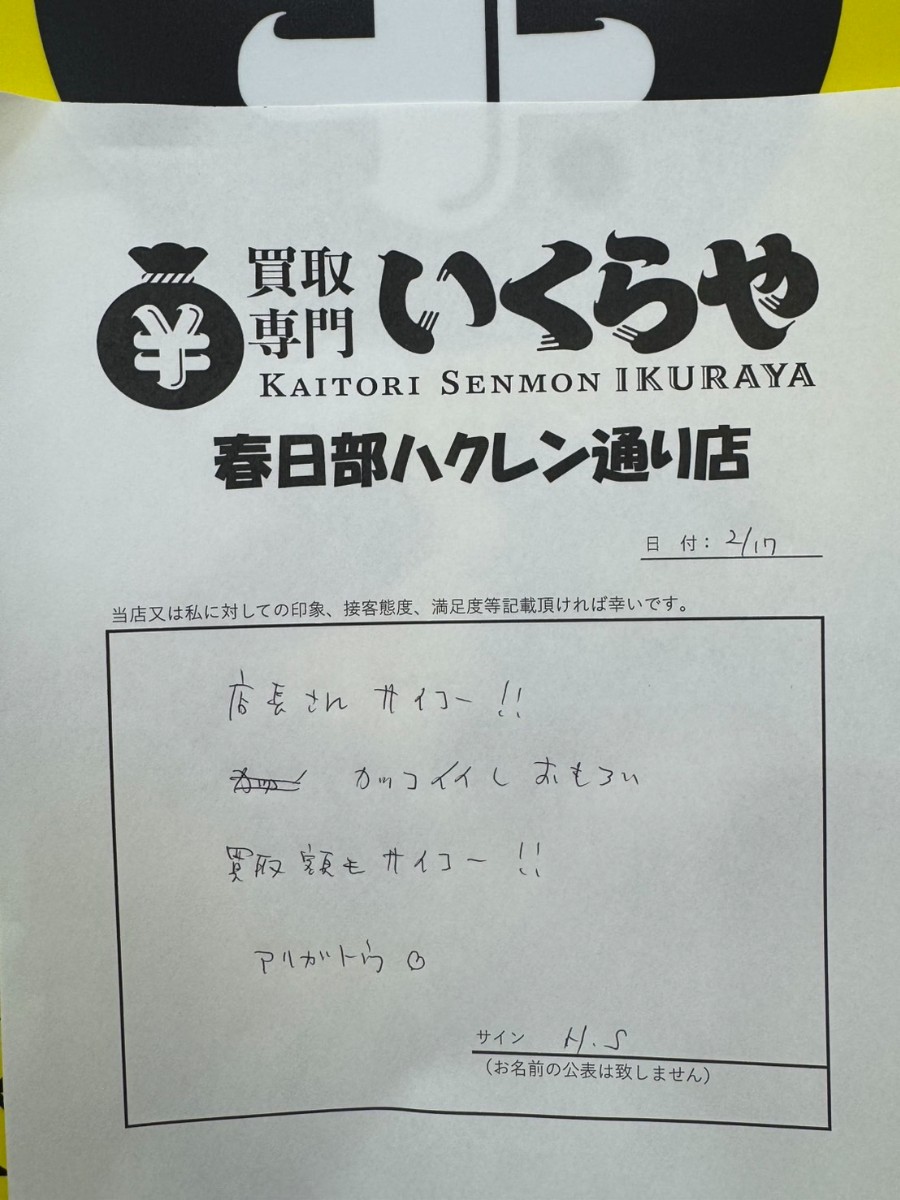 買取
専門
いくらや
KAITORI SENMON IKURAYA
春日部ハクレン通り店
日 付： 2/17
当店又は私に対しての印象、接客態度、満足度等記載頂ければ幸いです。
店長さん サイコー!!
カッコイイし おもろい
買取額もサイコー!!
アリガトウ♡
サイン H.S
（お名前の公表は致しません）